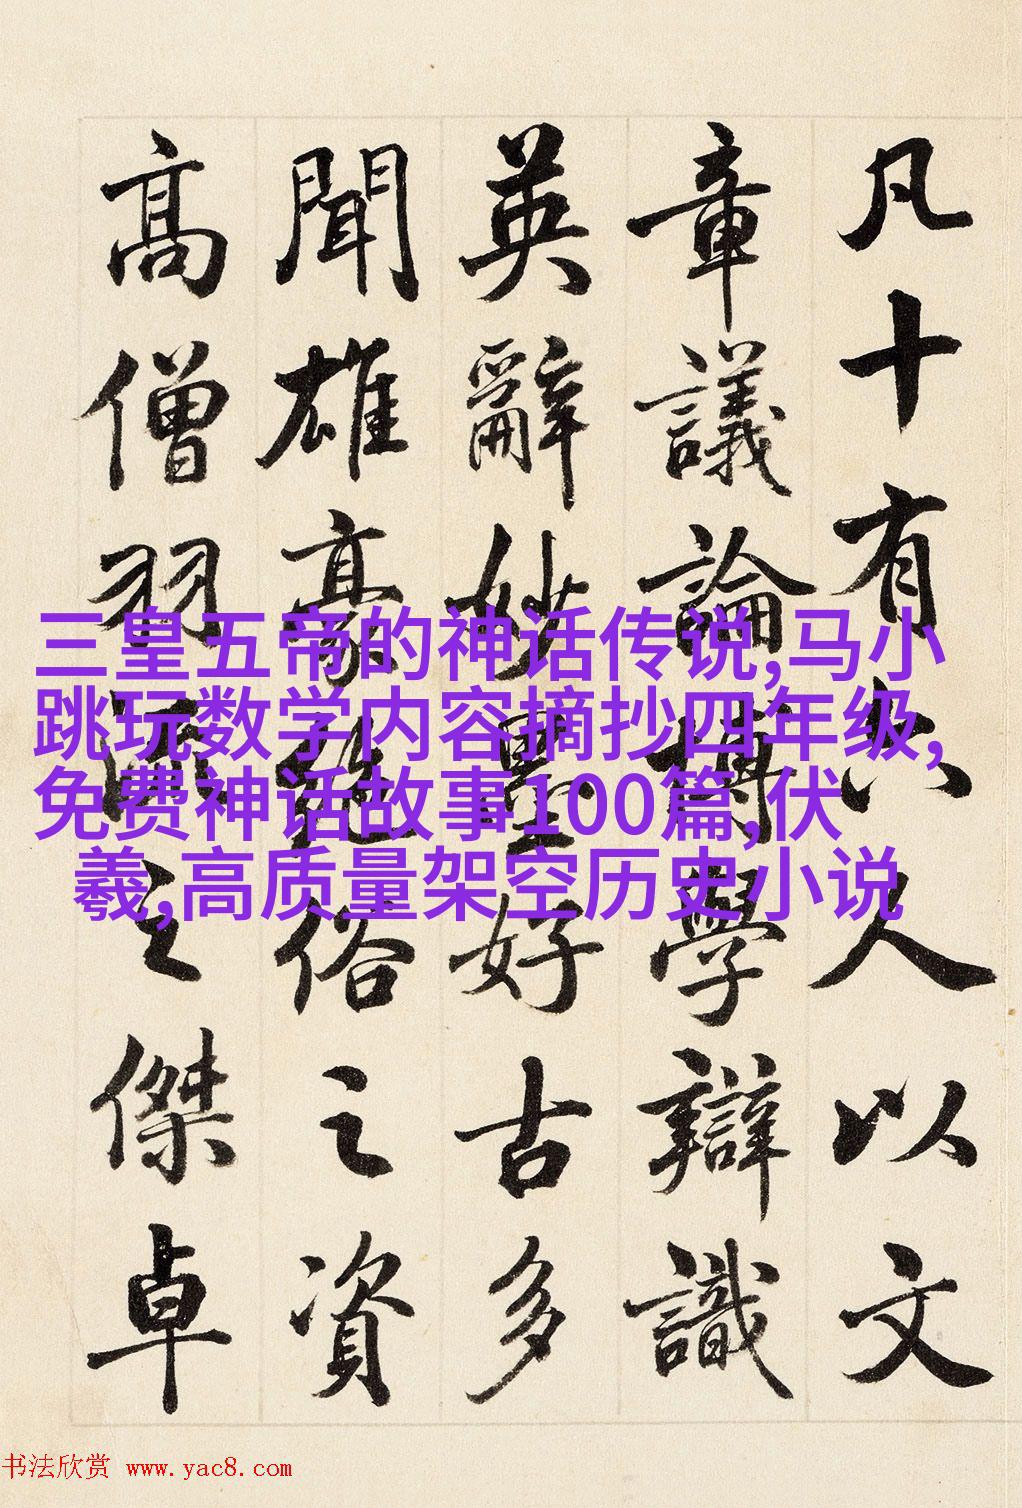 凡十有六人以文
章議論博學辯識
英辭妙墨好古多
聞雄豪絕俗之資
高僧羽流之傑卓
三皇五帝的神话传说,马小
跳玩数学内容摘抄四年级,
免费神话故事100篇,伏
羲,高质量架空历史小说
书法欣赏 www.yac8.com